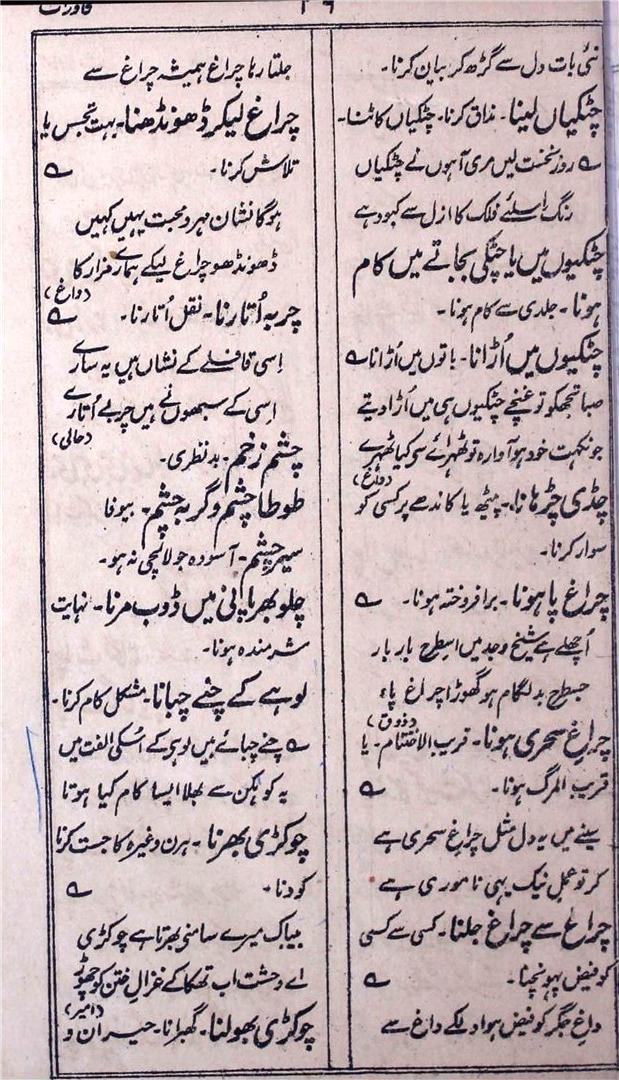 محاورات
۳۶
نئی بات دل سے گڑھ کر بیان کرنا۔
چٹکیاں لینا۔ مذاق کرنا۔ چٹکیاں کاٹنا۔
روز نخست لیں مری آہوں نے چٹکیاں
رنگ اسلئے فلک کا ازل سے کبود ہے
چٹکیوں میں یا چٹکی بجاتے میں کام
ہونا۔ جلدی سے کام ہونا۔
چٹکیوں میں اُڑانا۔ باتوں میں اُڑانا ؎
صبا تجھکو تو غنچے چٹکیوں ہی میں اُڑا دیتے
جو نکہت خود ہو آوارہ تو ٹھہرائے سے کیا ٹھہرے
(داغ)
چڈی چڑھانا۔ پیٹھ یا کاندھے پر کسی کو
سوار کرنا۔
چراغ پا ہونا۔ برافروختہ ہونا۔ ؎
اُچھلے ہے شیخ وجد میں اسطح بار بار
جسطح بدلگام ہو گھوڑا چراغ پاء
(ذوق)
چراغ سحری ہونا۔ قریب الاختتام۔ یا
قریب المرگ ہونا۔ ؎
سینے میں یہ دل مثل چراغ سحری ہے
کر تو عمل نیک یہی ناموری ہے
چراغ سے چراغ جلنا۔ کسی سے کسی
کو فیض پہونچنا۔ ؎
داغ جگر کو فیض ہوا دلکے داغ سے
جلتا رہا چراغ ہمیشہ چراغ سے
چراغ لیکر ڈھونڈھنا۔ بہت تجسس یا
تلاش کرنا۔ ؎
ہوگا نشان مہر و محبت یہیں کہیں
ڈھونڈھو چراغ لیکے ہمارے مزار کا
(داغ)
چربہ اُتارنا۔ نقل اُتارنا۔ ؎
اِسی قافلے کے نشاں ہیں یہ سارے
اِسی کے سبھوں نے ہیں چربے اُتارے
(حالی)
چشم زخم۔ بدنظری۔
طوطا چشم و گربہ چشم۔ بیوفا
سیر چشم۔ آسودہ جو لالچی نہ ہو۔
چلو بھر پانی میں ڈوب مرنا۔ نہایت
شرمندہ ہونا۔
لوہے کے چنے چبانا۔ مشکل کام کرنا۔
؎ چنے چبائے ہیں لوہی کے اُسکی الفت میں
یہ کوہکن سے بھلا ایسا کام کیا ہوتا
چوکڑی بھرنا۔ ہرن وغیرہ کا جست کرنا
کودنا۔ ؎
بیباک میرے سامنی بھرتا ہے چوکڑی
اے وحشت اب تھکا کے غزال ختن کو چھوڑ
(امیر)
چوکڑی بھولنا۔ گھبرانا۔ حیران و